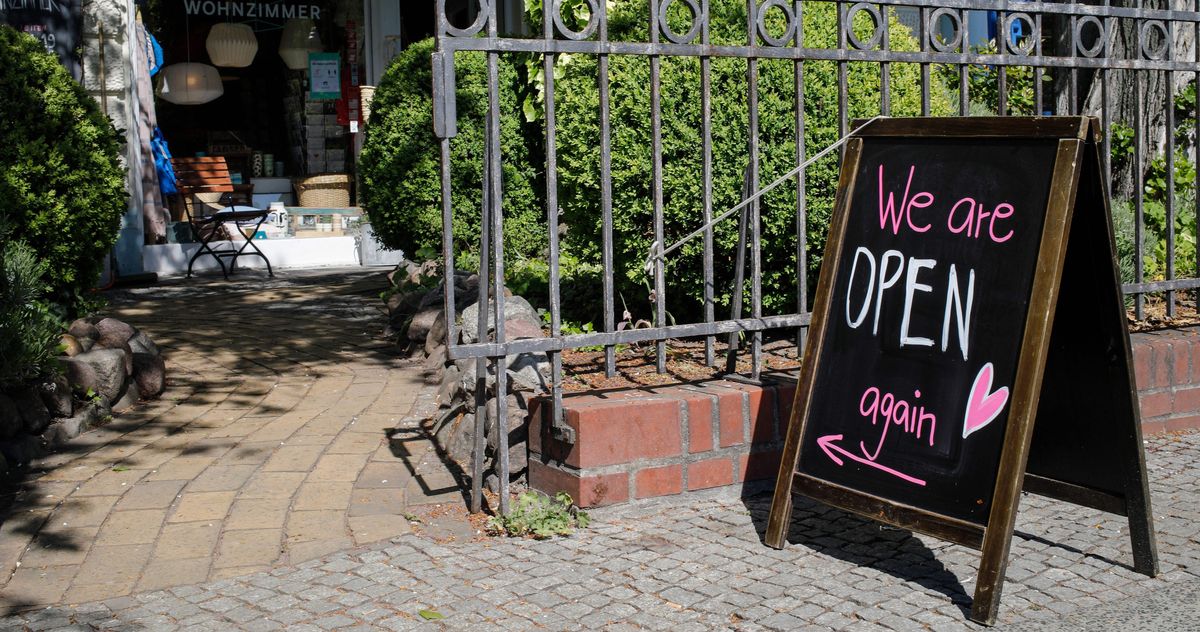 WOHNZIMMER
We are
OPEN
again